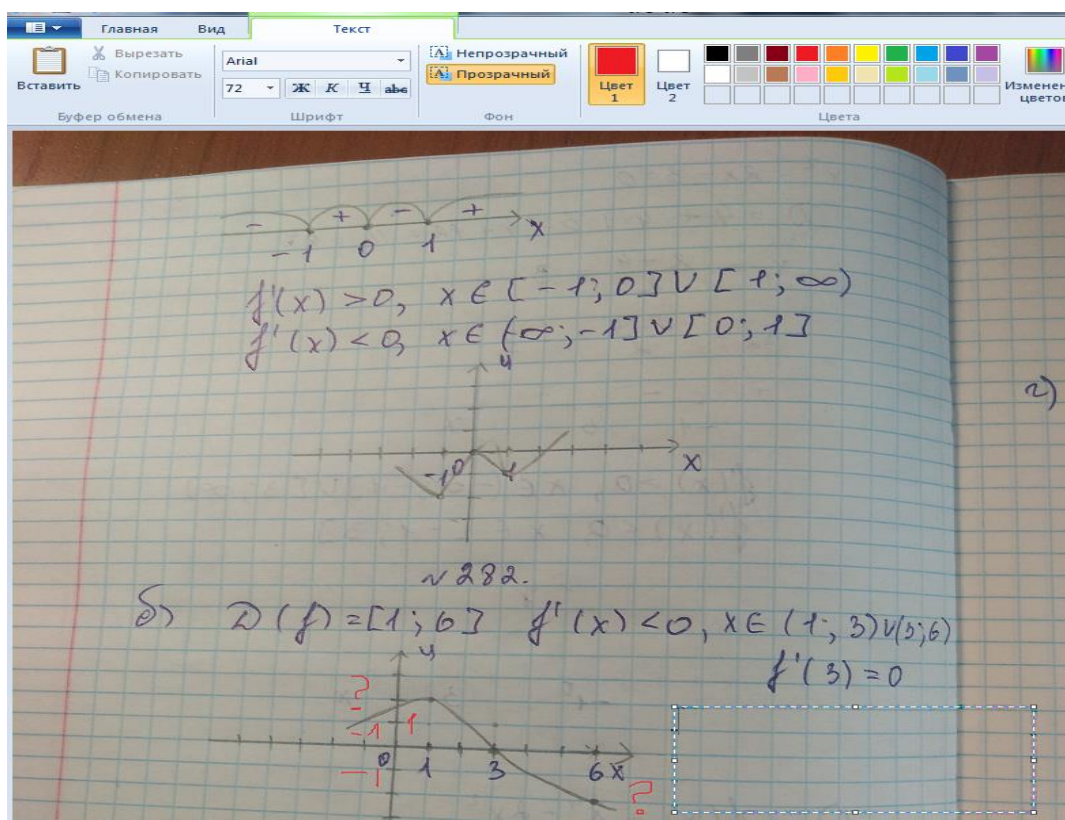 Главная Вид Текст
Вставить
Вырезать
Копировать
Буфер обмена
Arial
72 Ж К Ч abc
Шрифт
Непрозрачный
Прозрачный
Фон
Цвет 1
Цвет 2
Изменен
цветов
Цвета
- + - +
-1 0 1 x
f'(x) >0, x ∈ [-1; 0] ∪ [1; ∞)
f'(x) <0, x ∈ (∞; -1] ∪ [0; 1]
y
г)
-1 0 1 x
№ 282.
б) D(f)=[1; 6] f'(x) <0, x ∈ (1; 3) ∪ (3; 6)
f'(3) = 0
y
?
-1 1
0 1 3 6 x
-1
?